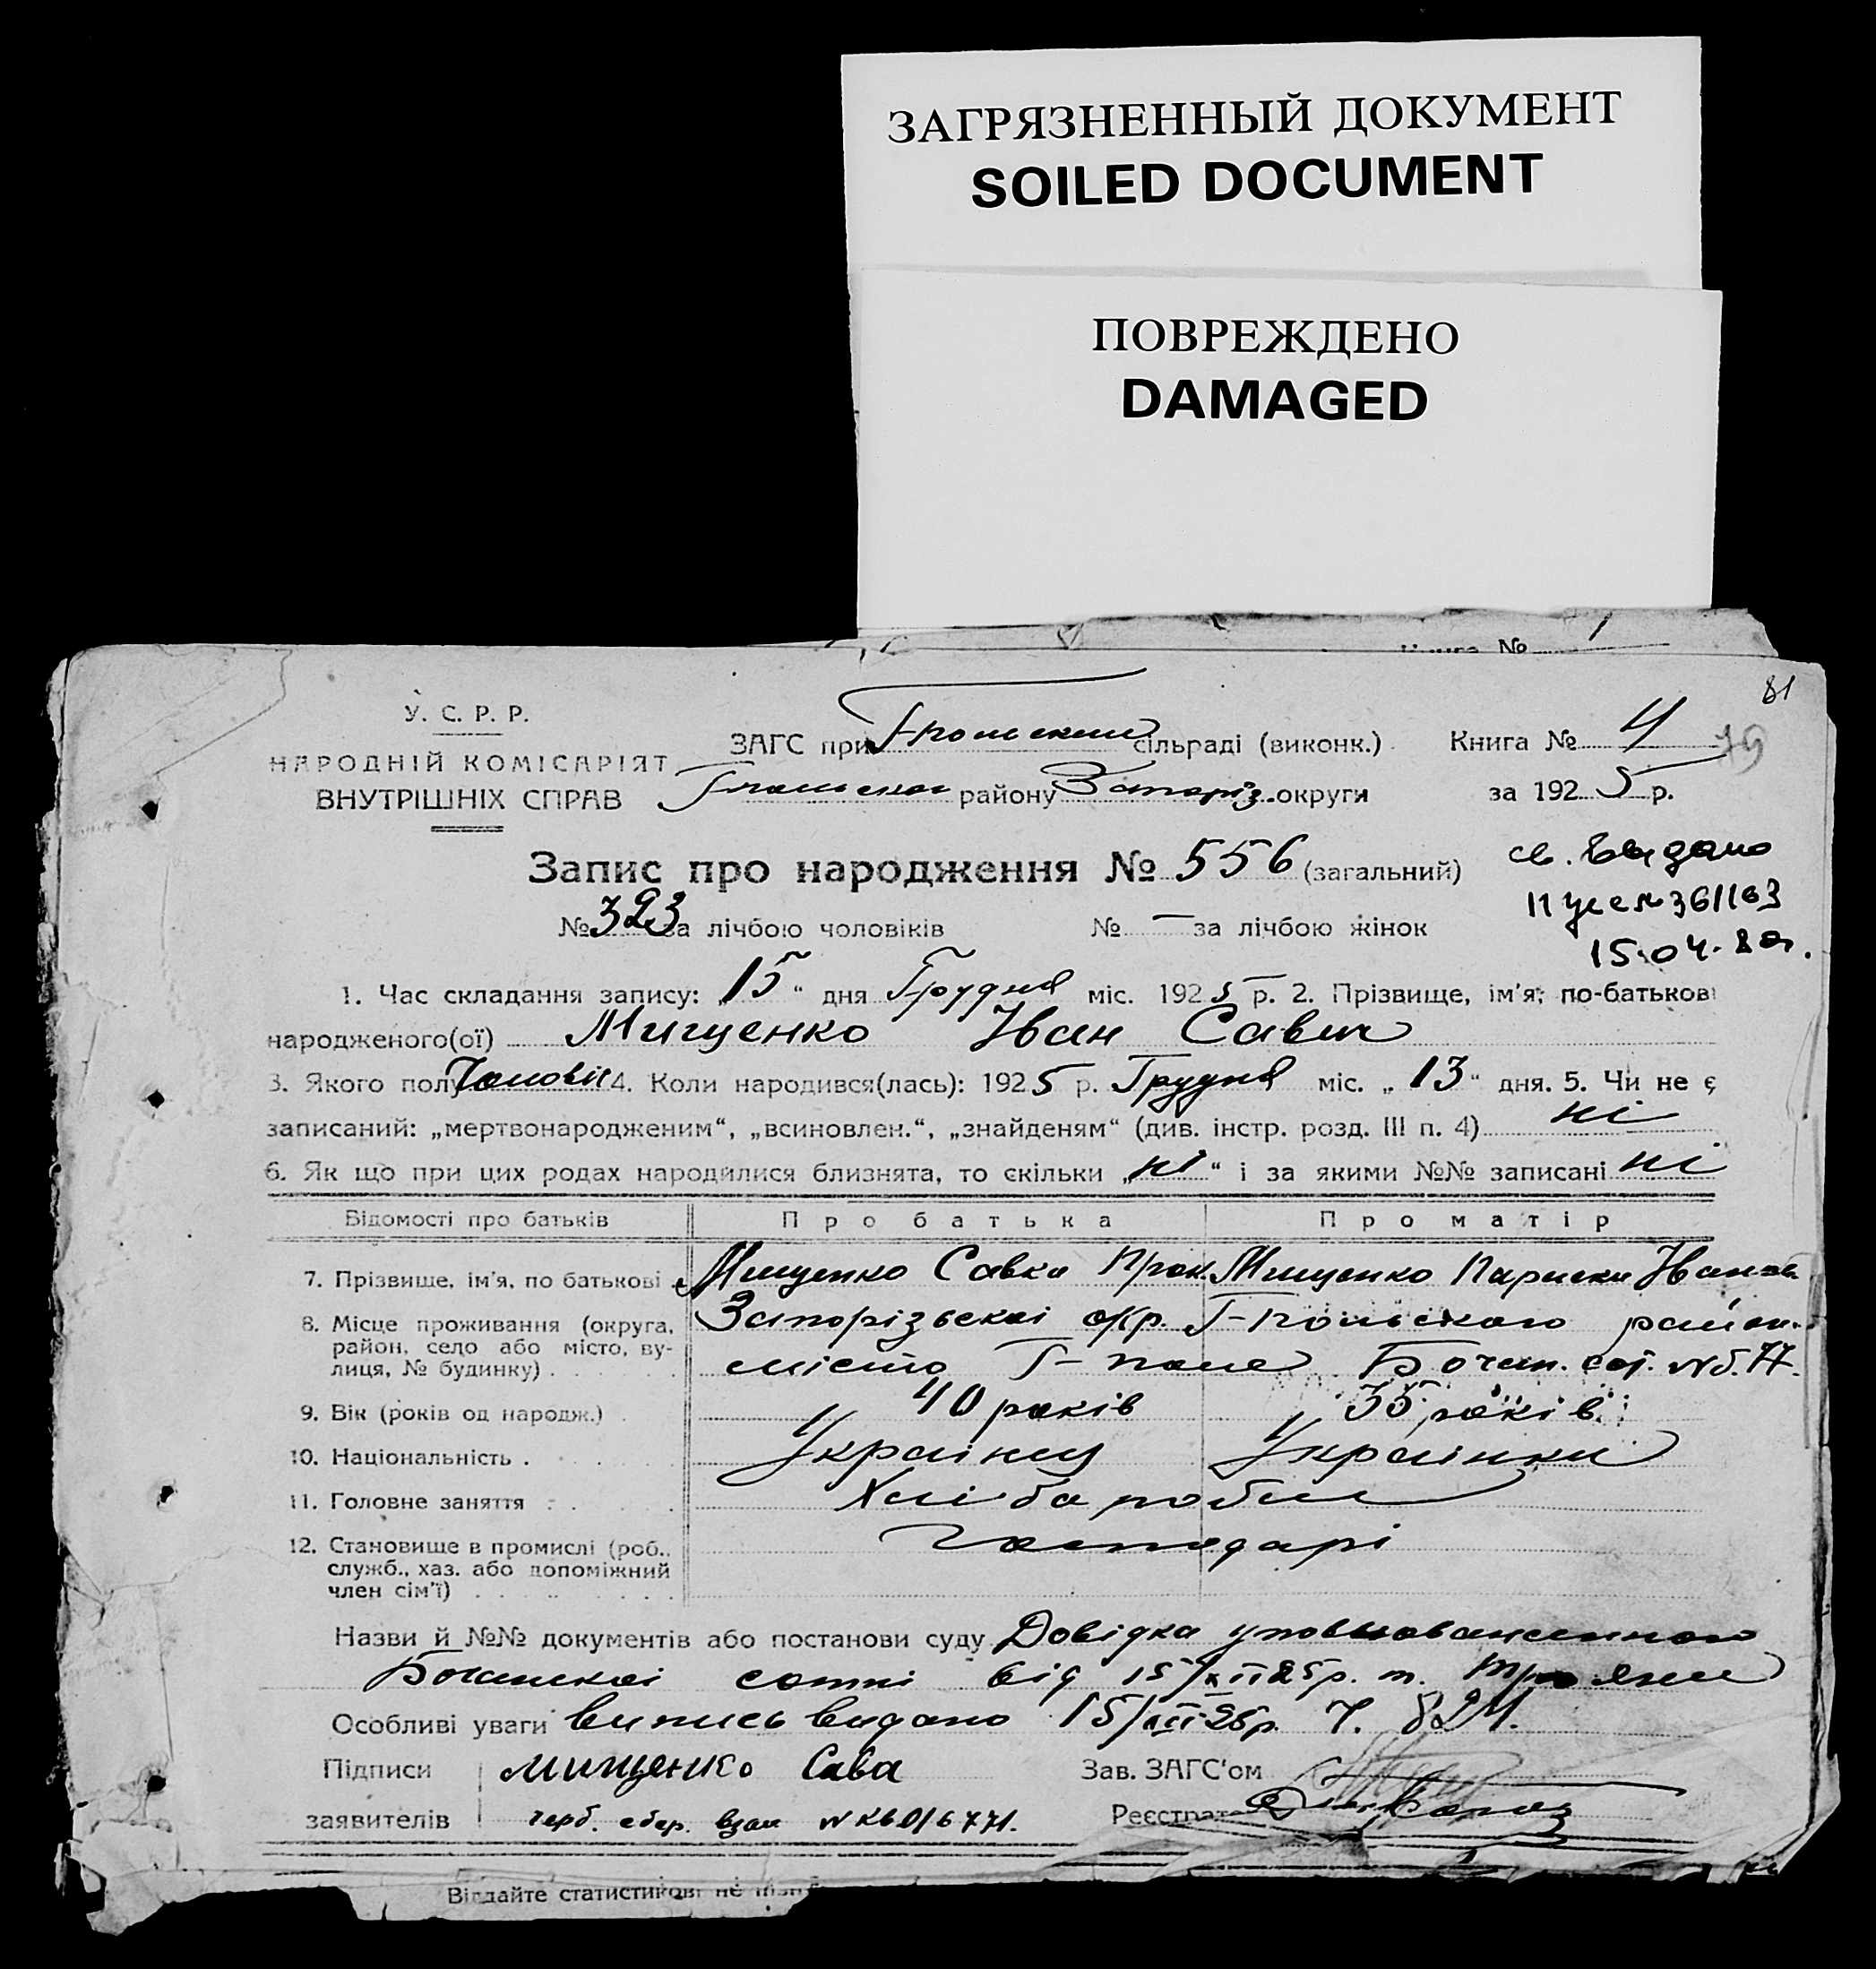 ЗАГРЯЗНЕННЫЙ ДОКУМЕНТ
SOILED DOCUMENT
ПОВРЕЖДЕНО
DAMAGED
Книга №
81
У. С. Р. Р.
НАРОДНІЙ КОМІСАРІЯТ
ВНУТРІШНІХ СПРАВ
ЗАГС при Г-польскій сільраді (виконк.)
Г-польскоі району Запоріз. округи
Книга № 4
79
за 1925 р.
Запис про народження № 556 (загальний)
№ 323 за лічбою чоловіків № — за лічбою жінок
св. выдано
361163
15.04.
1. Час складання запису: „15“ дня Грудня міс. 1925 р. 2. Прізвище, ім'я, по-батькові
народженого(ої) Мищенко Іван Савич
3. Якого полу Чоловіч 4. Коли народився(лась): 1925 р. Грудня міс. „13“ дня. 5. Чи не є
записаний: „мертвонародженим“, „всиновлен.“, „знайденям“ (див. інстр. розд. III п. 4) ні
6. Як що при цих родах народилися близнята, то скільки „ні“ і за якими №№ записані ні
Відомості про батьків Про батька Про матір
7. Прізвище, ім'я, по батькові Мищенко Савка Прок. Мищенко Параска Іванов
8. Місце проживання (округа, район, село або місто, вулиця, № будинку) Запорізськоі окр. Г-Польского район.
місто Г-поле Бочан. сот. №б. 77.
9. Вік (років од народж.) 40 років 35 років
10. Національність Украінці Украінки
11. Головне заняття Хліборобы
12. Становище в промислі (роб., служб., хаз. або допоміжний член сім'ї) господарі
Назви й №№ документів або постанови суду Довідка уповноваженного
Бочанскоі сотні від 15/XII 25 р. т.
Особливі уваги випись видано 15/XII 25 р. Ч. 824.
Підписи Мищенко Сава Зав. ЗАГС'ом
заявителів Реєстрат
Віддайте статистикові не пізн